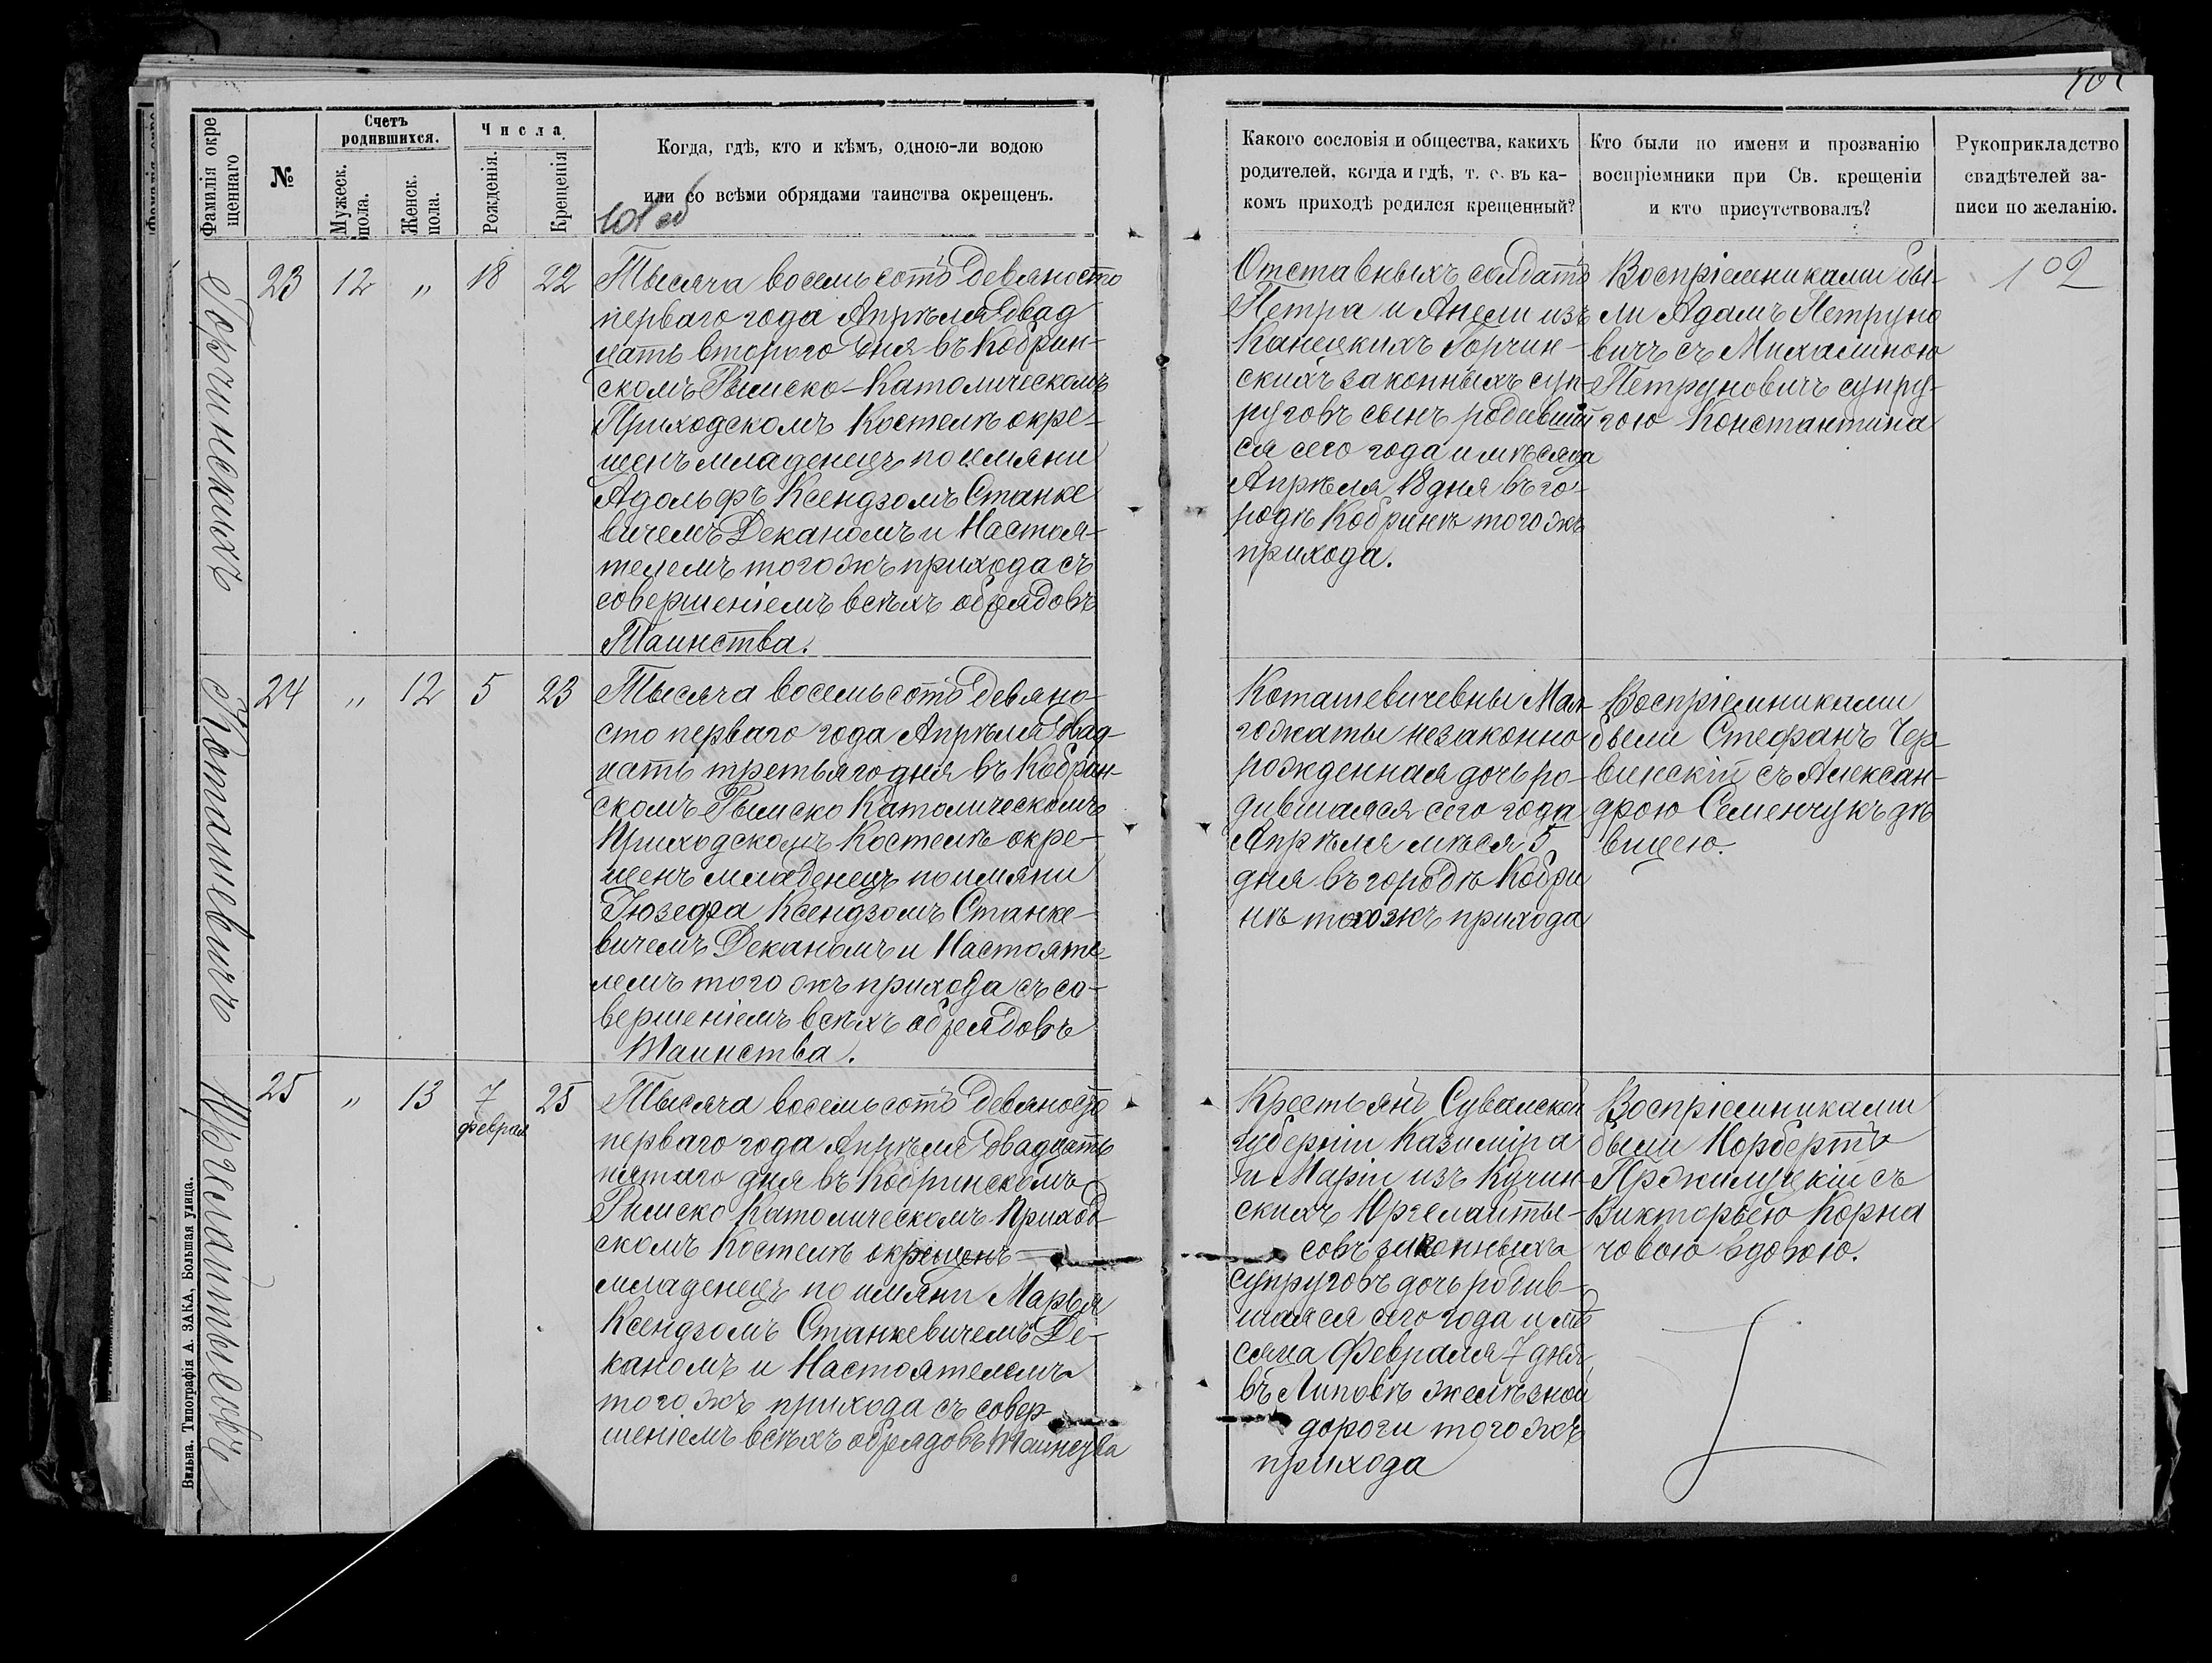 Фамилія окре
щеннаго
№
Счетъ
родившихся.
Мужеск.
пола.
Женск.
пола.
Числа
Рожденія.
Крещенія
Когда, гдѣ, кто и кѣмъ, одною-ли водою
или со всѣми обрядами таинства окрещенъ.
101 об
Горчинскихъ
23
12
"
18
22
Тысяча восемьсотъ девяносто
перваго года Апрѣля двад
цать второго дня въ Кобрин-
скомъ Римско-Католическомъ
Приходскомъ Костелѣ окре-
щенъ младенецъ по имяни
Адольфъ Ксендзомъ Станке
вичемъ Деканомъ и Настоя-
телемъ того жъ прихода съ
совершеніемъ всѣхъ обрядовъ
Таинства.
Коташевичъ
24
"
12
5
23
Тысяча восемьсотъ девяно-
сто перваго года Апрѣля двад-
цать третьяго дня въ Кобрин-
скомъ Римско Католическомъ
Приходскомъ Костелѣ окре-
щенъ младенецъ по имяни
Іюзефа Ксендзомъ Станке-
вичемъ Деканомъ и Настояте
лемъ того жъ прихода съ со-
вершеніемъ всѣхъ обрядовъ
Таинства.
25
"
13
7
феврал
25
Тысяча восемьсотъ девяносто
перваго года Апрѣля двадцать
пятаго дня въ Кобринскомъ
Римско Католическомъ Приход-
скомъ Костелѣ окрещенъ
младенецъ по имяни Марья
Ксендзомъ Станкевичемъ Де-
каномъ и Настоятелемъ
того жъ прихода съ совер
шеніемъ всѣхъ обрядовъ Таинства
Вильна. Типографія А. ЗАКА, Большая улица.
Какого сословія и общества, какихъ
родителей, когда и гдѣ, т. е. въ ка-
комъ приходѣ родился крещенный?
Кто были по имени и прозванію
воспріемники при Св. крещеніи
и кто присутствовалъ?
Рукоприкладство
свидѣтелей за-
писи по желанію.
102
Отставныхъ солдатъ
Петра и Анели изъ
Канецкихъ Горчин-
скихъ законныхъ суп-
руговъ сынъ родивший
ся сего года и мѣсяца
Апрѣля 18 дня въ го-
родѣ Кобринѣ того жъ
прихода.
Воспріемниками бы-
ли Адамъ Петруно
вичъ съ Михалиною
Петруновичъ супру-
гою Константина
Коташевичевны Мал-
гожаты незаконно
рожденная дочь ро-
дившаяся сего года
Апрѣля мѣсяца 5
дня въ городѣ Кобри
нѣ того жъ прихода
Воспріемниками
были Стефанъ Чер-
винскій съ Алексан-
дрою Семенчукъ дѣ
вицею.
Крестьянъ Сувалской
губерніи Казиміра
и Маріи изъ Кучин
скихъ Юргелайты-
совъ законныхъ
супруговъ дочь родив-
шаяся сего года и мѣ
сяца Февраля 7 дня
въ Липовѣ желѣзной
дороги того жъ
прихода
Воспріемниками
были Норбертъ
съ
Викторьею Корна
човою вдовою.